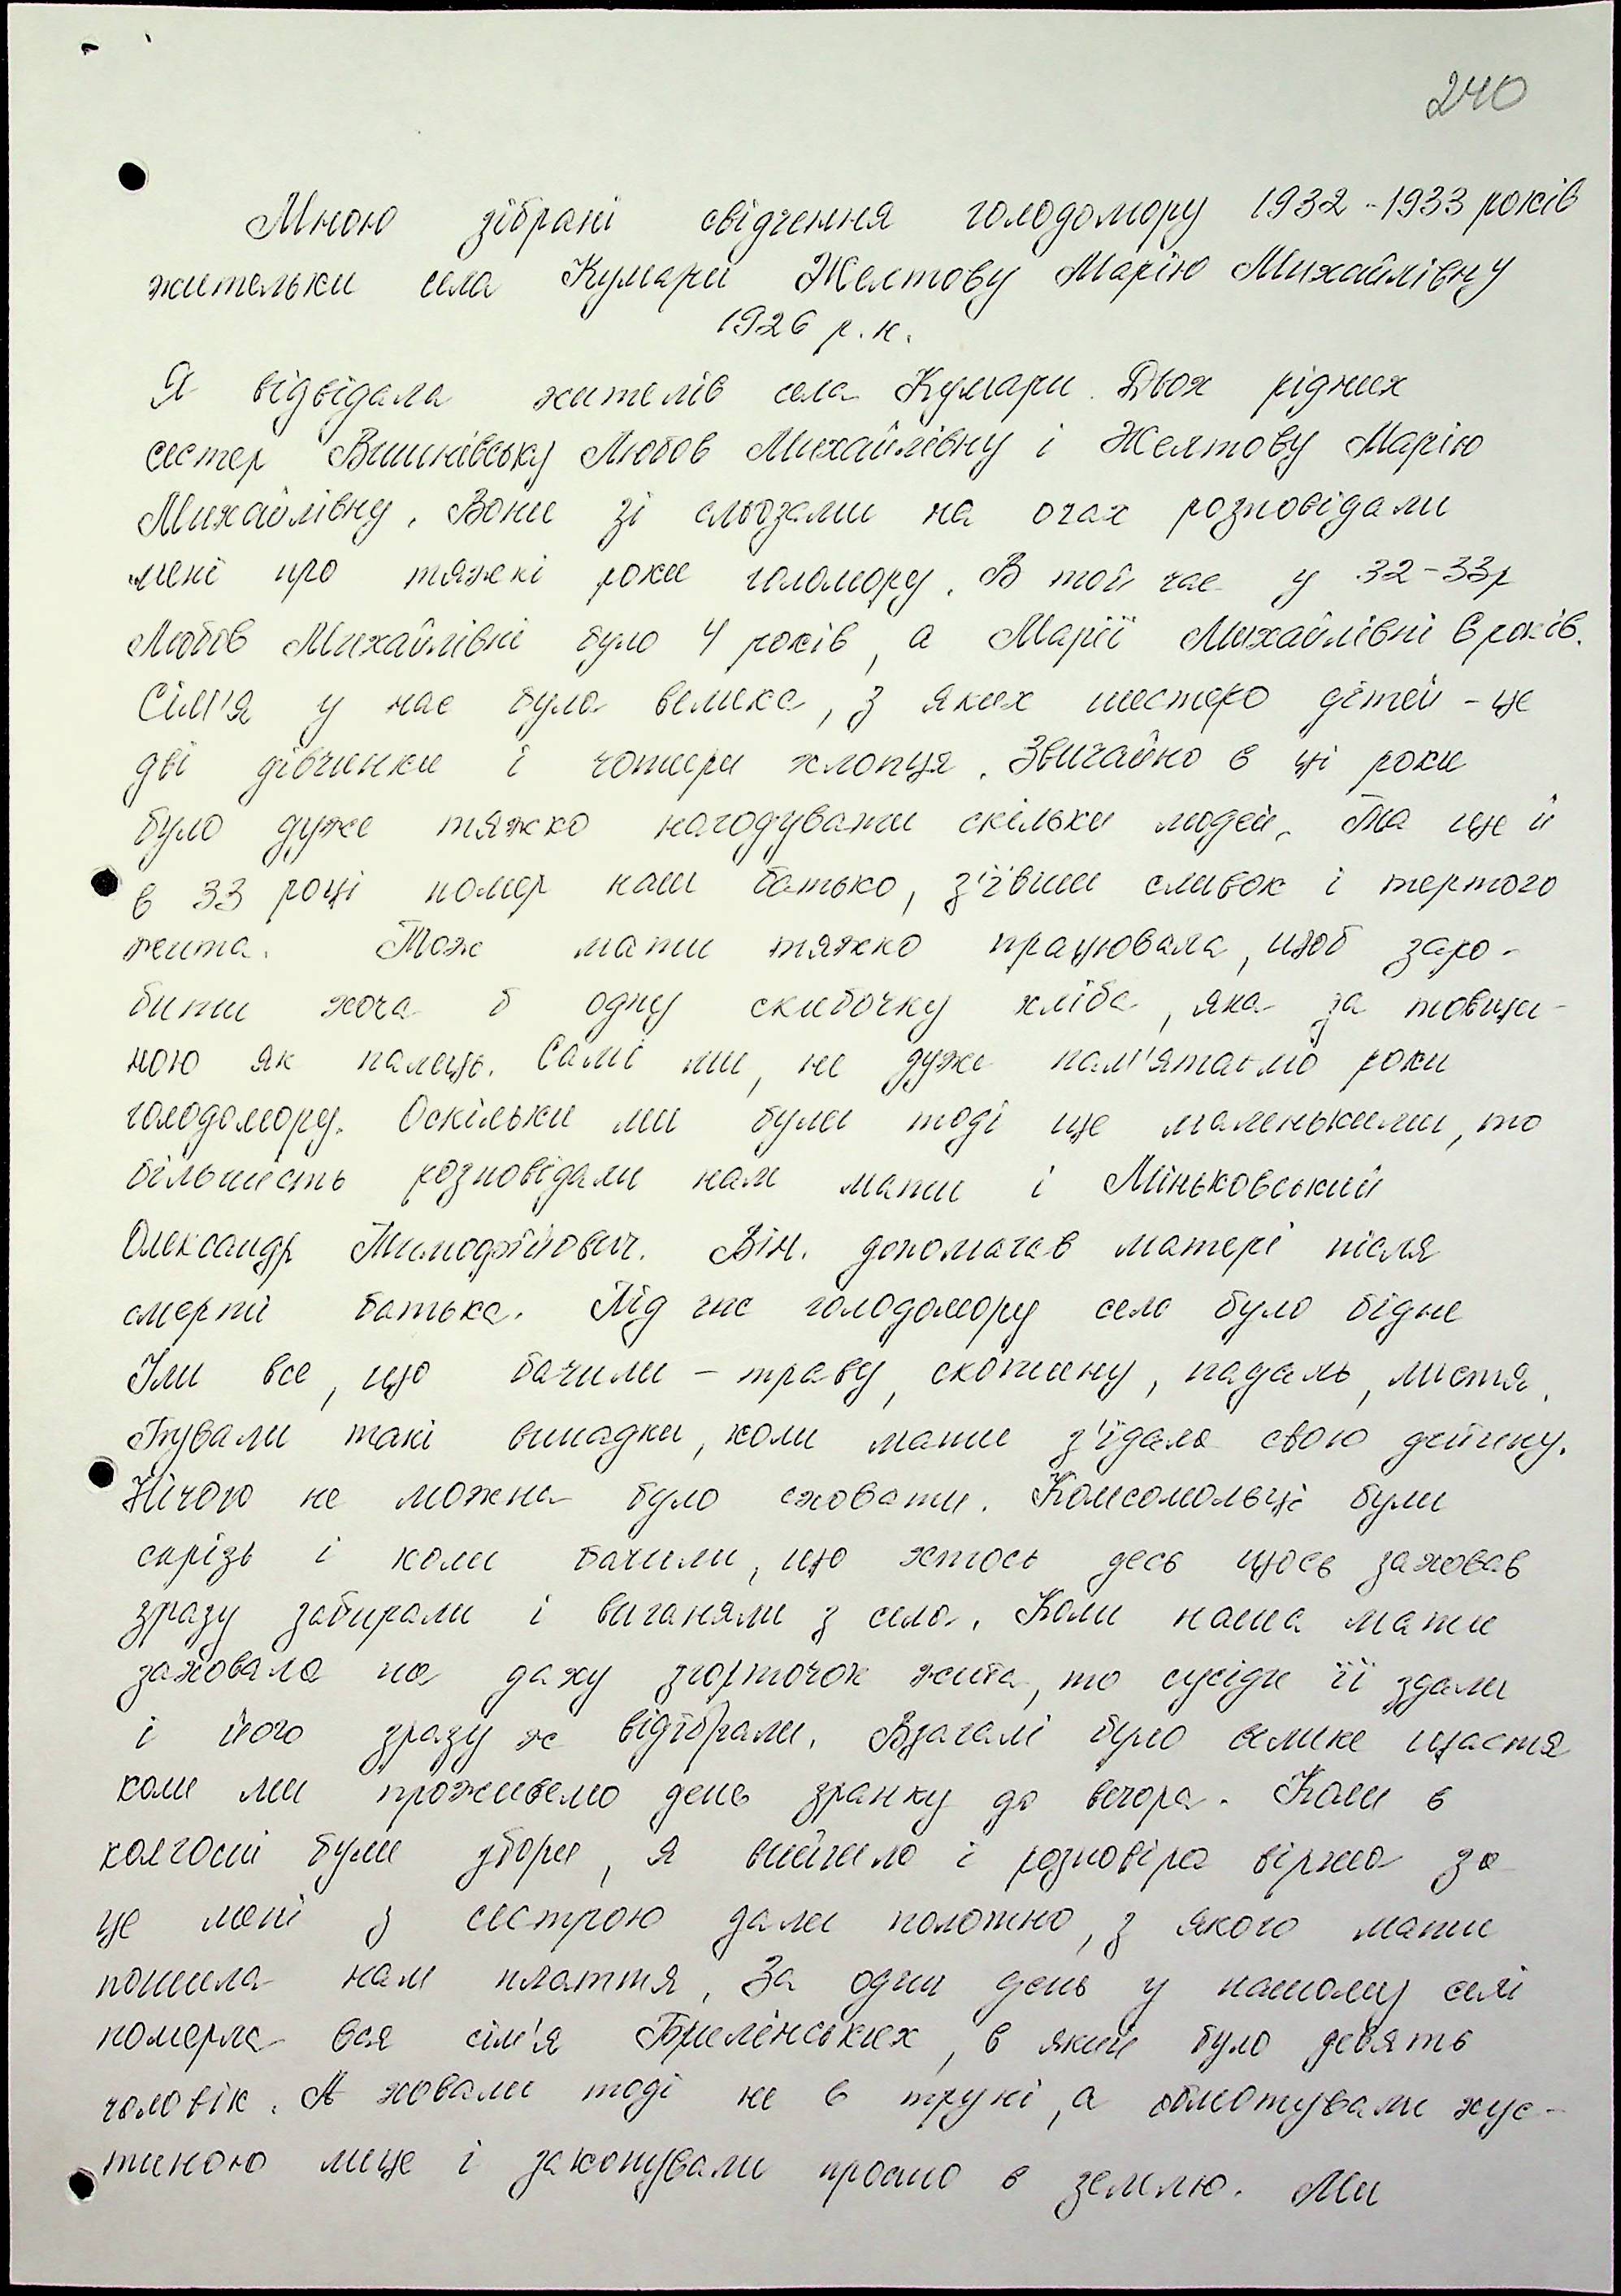 240
Мною зібрані свідчення голодомору 1932-1933 років
жительки села Кумари Желтову Марію Михайлівну
1926 р.н.
Я відвідала жителів села Кумари. Двох рідних
сестер Вишнівську Любов Михайлівну і Желтову Марію
Михайлівну. Вони зі сльозами на очах розповідали
мені про тяжкі роки голомору. В той час у 32-33р
Любов Михайлівні було 4 років, а Марії Михайлівні 6 років.
Сім'я у нас була велика, з яких шестеро дітей - це
дві дівчинки і чотири хлопця. Звичайно в ці роки
було дуже тяжко нагодувати скільки людей. Та ще й
в 33 році помер наш батько, з'ївши сливок і тертого
жита. Тож мати тяжко працювала, щоб заро-
бити хоча б одну скибочку хліба, яка за товщи-
ною як палець. Самі ми, не дуже пам'ятаємо роки
голодомору. Оскільки ми були тоді ще маленькими, то
більшість розповідали нам мати і Міньковський
Олександр Тимофійович. Він. допомагав матері після
смерті батька. Під час голодомору село було бідне
Їли все, що бачили - траву, скотину, падаль, листя.
Бували такі випадки, коли мати з'їдала свою дитину.
Нічого не можна було сховати. Комсомольці були
скрізь і коли бачили, що хтось десь щось заховав
зразу забирали і виганяли з села. Коли наша мати
заховала на даху згорточок жита, то сусіди її здали
і його зразу ж відібрали. Взагалі було велике щастя
коли ми проживемо день зранку до вечора. Коли в
колгоспі були збори, я вийшла і розповіла вірша за
це мені з сестрою дали полотно, з якого мати
пошила нам плаття. За один день у нашому селі
померла вся сім'я Брилінських, в якій було девять
чоловік. А ховали тоді не в труні, а обмотували хус-
тиною лице і закопували просто в землю. Ми